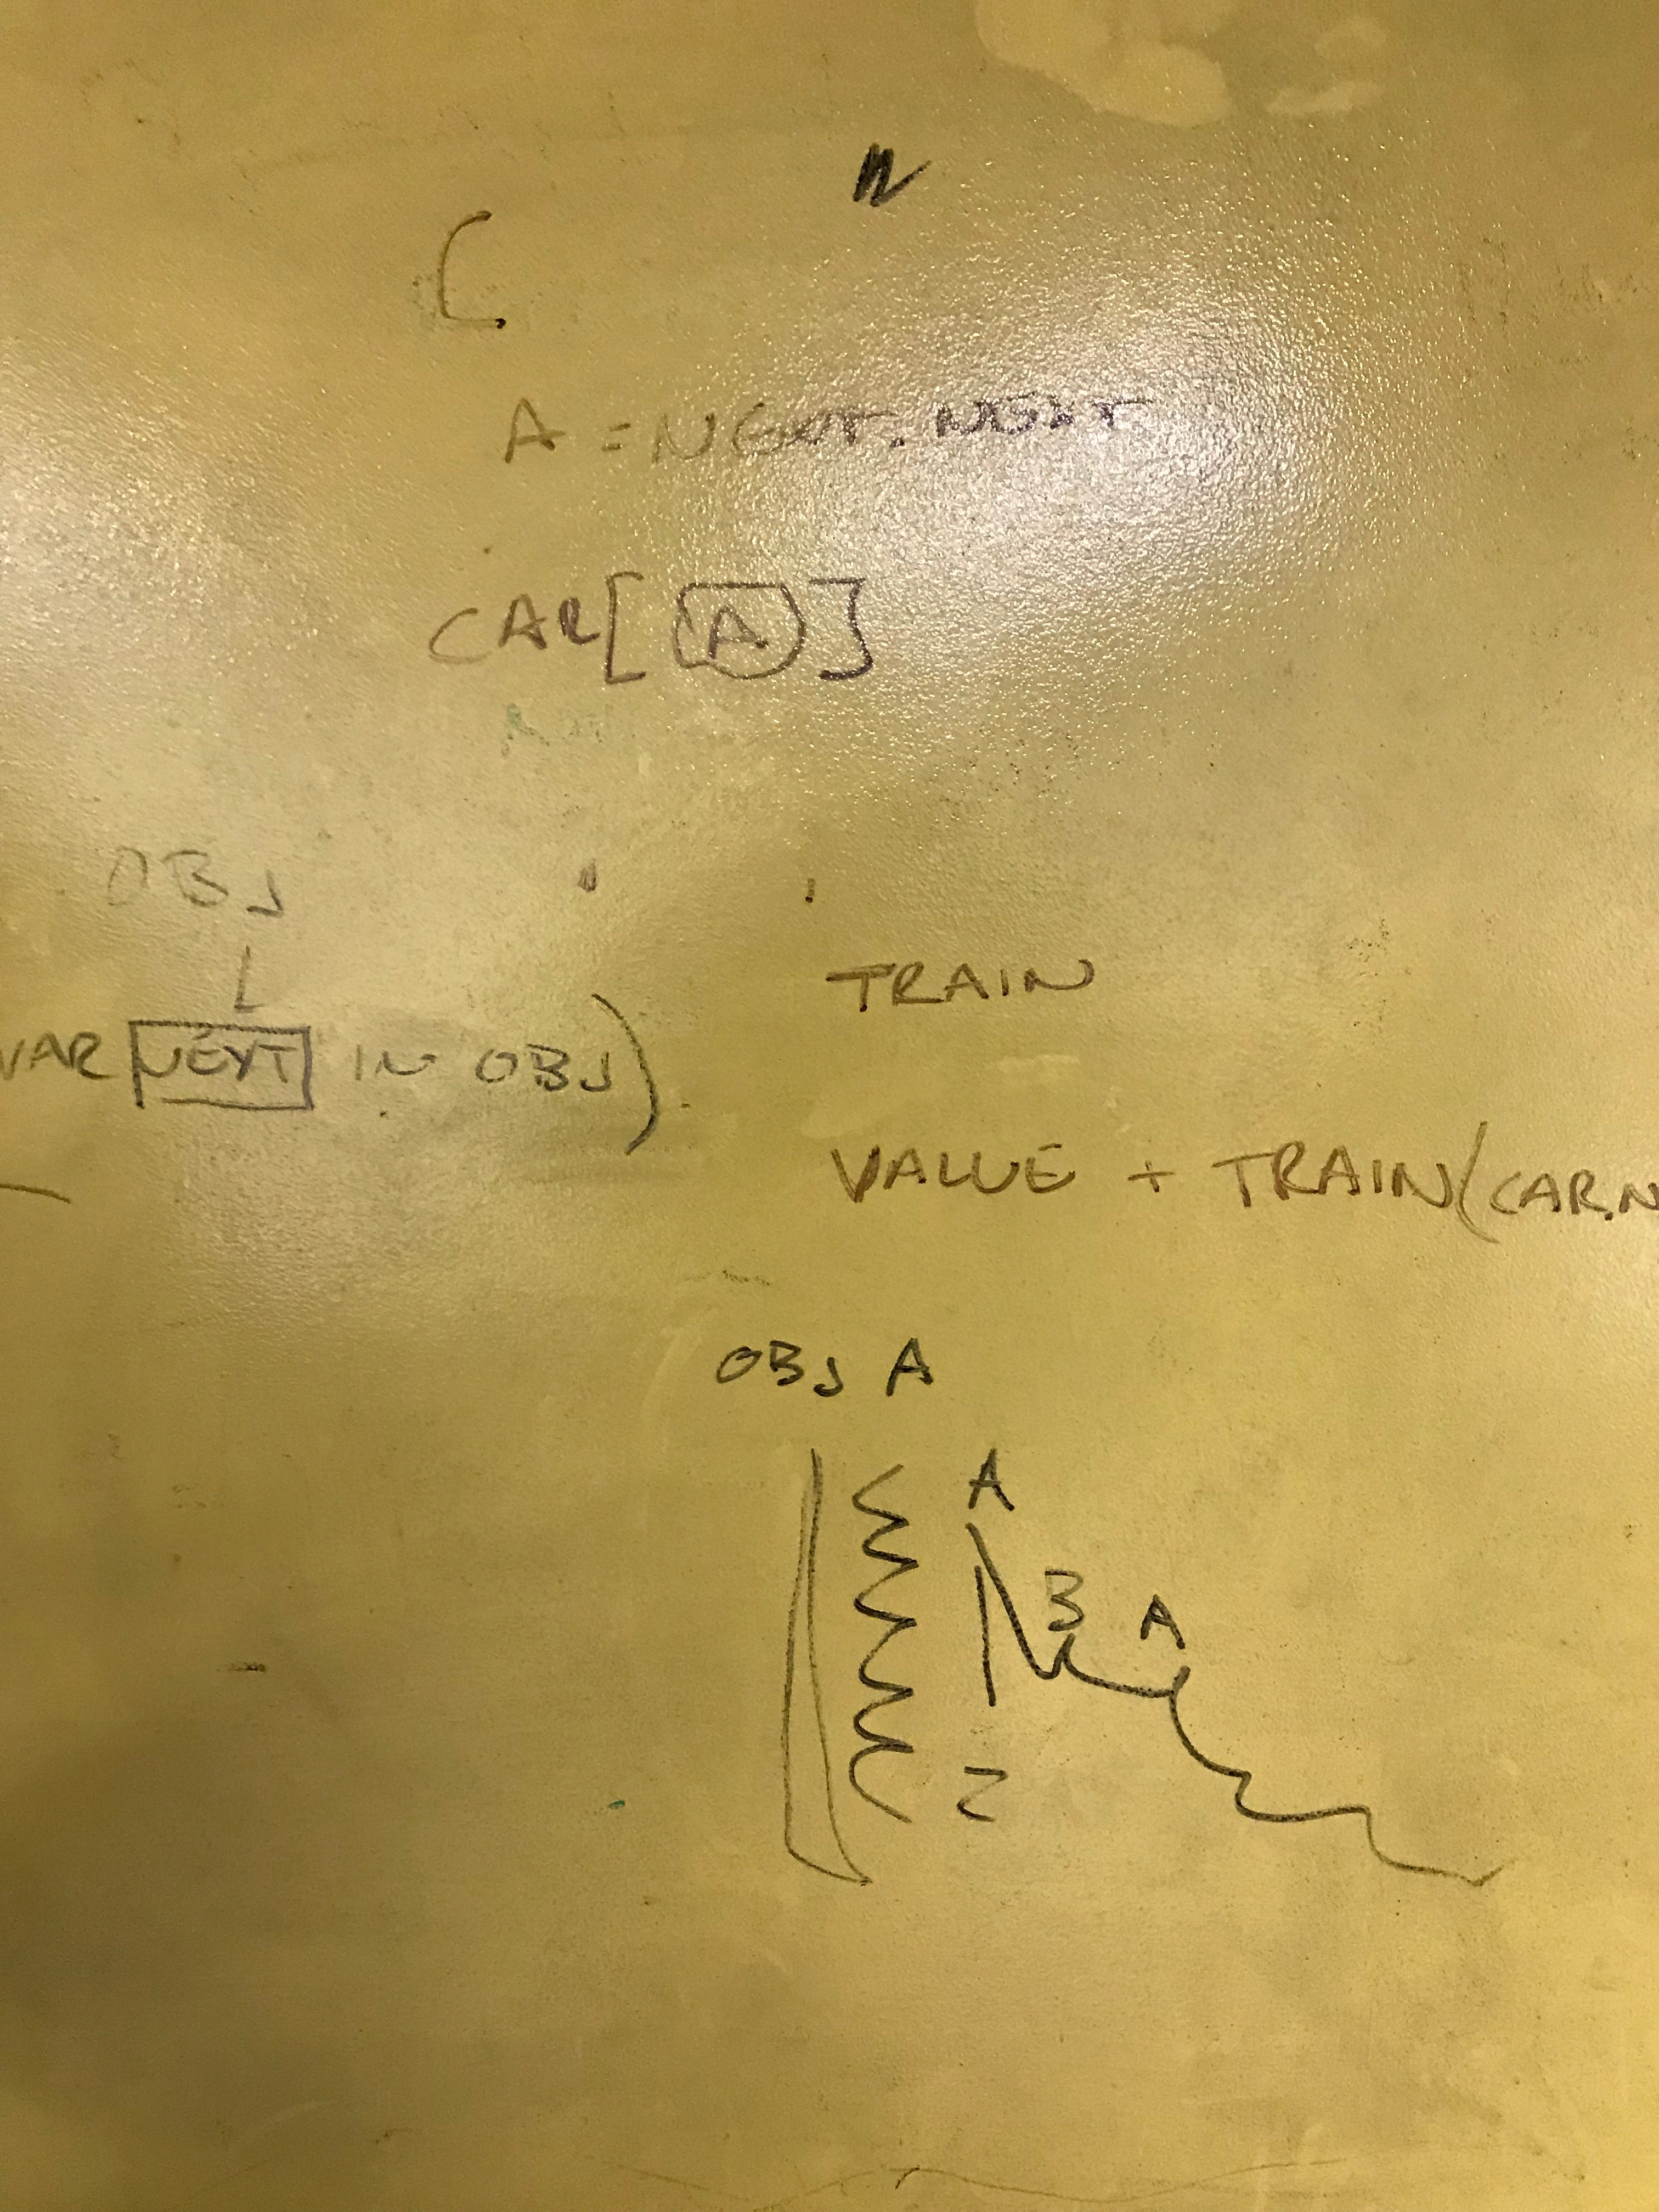 A = NEXT.NEXT
CAR[A]
OBJ
VAR NEXT IN OBJ)
TRAIN
VALUE + TRAIN(CAR.N
OBJ A
A
B A